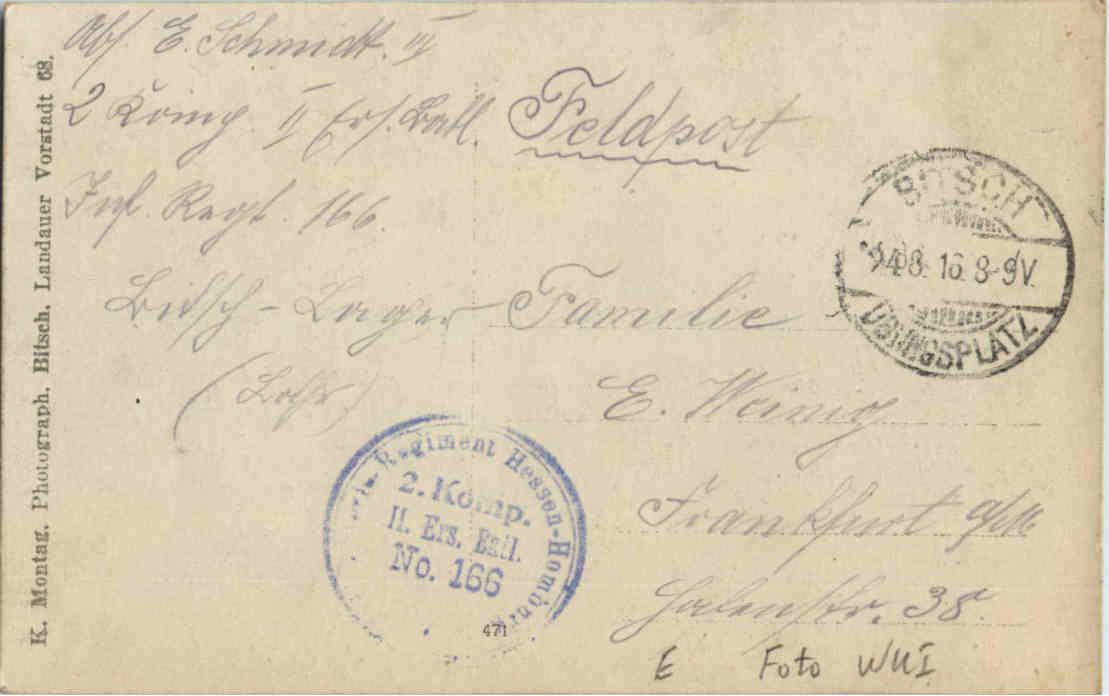 Abs. E. Schmidt. IV
2 Komp. II Ers. Batl.
Inf. Regt. 166.
Bitsch-Lager
(Lothr)
Feldpost
Familie
E. Weinig
Frankfurt a/M
38.
BITSCH
8-9V.
ÜBUNGSPLATZ
Regiment Hessen-Homburg
2. Komp.
II. Ers. Batl.
No. 166
471
E Foto WKI
K. Montag. Photograph. Bitsch. Landauer Vorstadt 68.